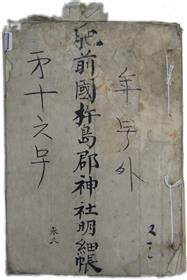 年号外
肥前國杵島郡神社明細帳
第十六号